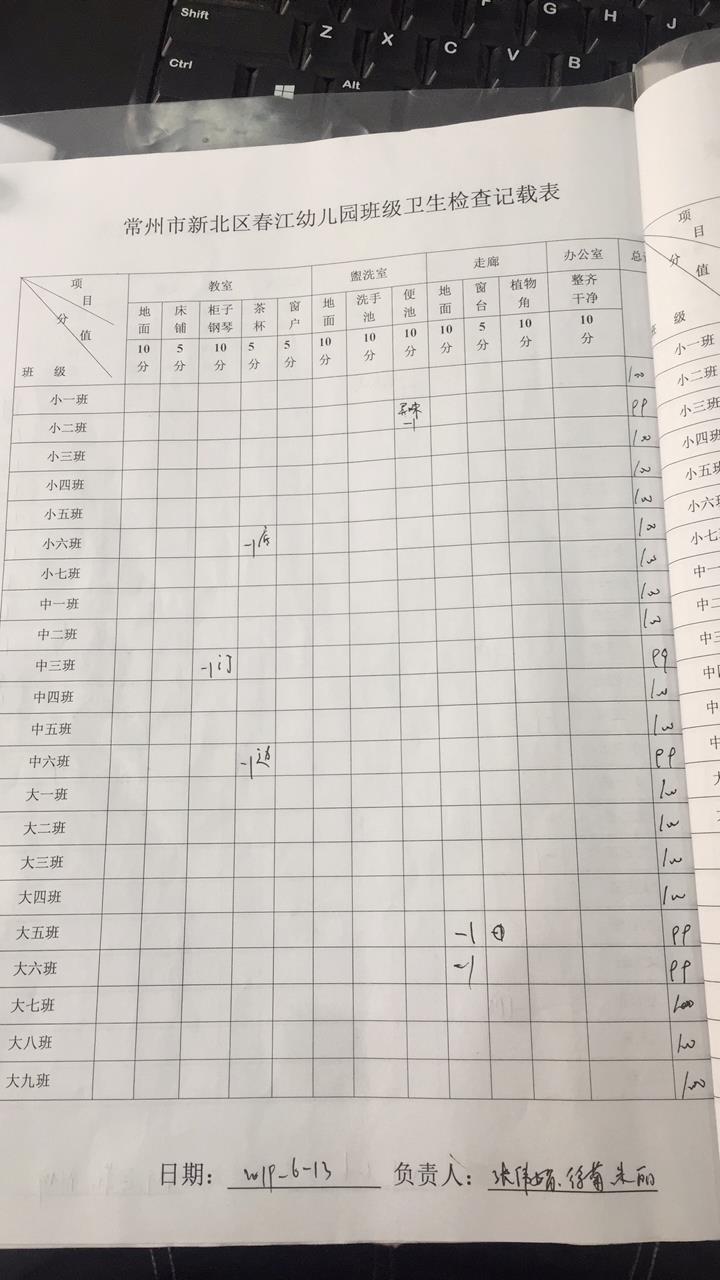 Shift
Z X C V B
F G H J
Ctrl
Alt
常州市新北区春江幼儿园班级卫生检查记载表
项目 分值 班级
教室 盥洗室 走廊 办公室 总
地面 床铺 柜子钢琴 茶杯 窗户 地面 洗手池 便池 地面 窗台 植物角 整齐干净
10分 5分 10分 5分 5分 10分 10分 10分 10分 5分 10分 10分
小一班 100
小二班 异味 -1 99
小三班 100
小四班 100
小五班 100
小六班 -1 100
小七班 100
中一班 100
中二班 100
中三班 -1 门 99
中四班 100
中五班 100
中六班 -1 边 99
大一班 100
大二班 100
大三班 100
大四班 100
大五班 -1 99
大六班 -1 99
大七班 100
大八班 100
大九班 100
日期: 2019-6-13 负责人:
项目
分
级
小一班
小二班
小三班
小四班
小五班
小六班
小七
中一
中二
中三
中四
中
中